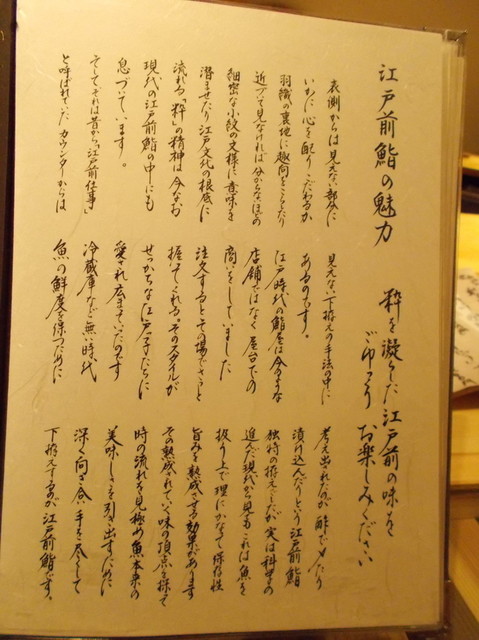 江戸前鮨の魅力
表側からは見えない部分に
いかに心を配りこだわるか
羽織の裏地に趣向をこらしたり
近づいて見なければ分からないほどの
細密な小紋の文様に意味を
潜ませたり江戸文化の根底に
流れる「粋」の精神は今なお
現代の江戸前鮨の中にも
息づいています。
そしてそれは昔から「江戸前仕事」
と呼ばれていたカウンターからは
見えない下拵えの手法の中に
あるのです。
江戸時代の鮨屋は今のような
店舗ではなく屋台での
商いをしていました
注文するとその場でさっと
握ってくれる。そのスタイルが
せっかちな江戸っ子たちに
愛され広まっていたのです
冷蔵庫など無い時代
魚の鮮度を保つために
考え出されたのが酢で〆たり
漬け込んだりという江戸前鮨
独特の拵えごとだが実は科学の
進んだ現代から見てもこれは魚を
扱う上で理にかなって保存性
旨みを熟成させる効果があります
その熟成されていく味の頂点を採って
時の流れを見極め魚本来の
美味しさを引き出すために
深く向き合い手を尽くして
下拵えするのが江戸前鮨です。
粋を凝らした江戸前の味を
ごゆっくり
お楽しみください